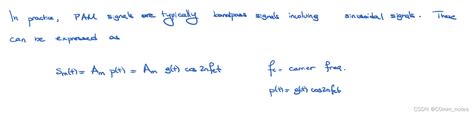 In practice, PAM signals are typically bandpass signals involving sinusoidal signals. These
can be expressed as
Sm(t) = Am p(t) = Am g(t) cos 2πfct fc = carrier freq.
p(t) = g(t) cos2πfct
CSDN @COmm_notes